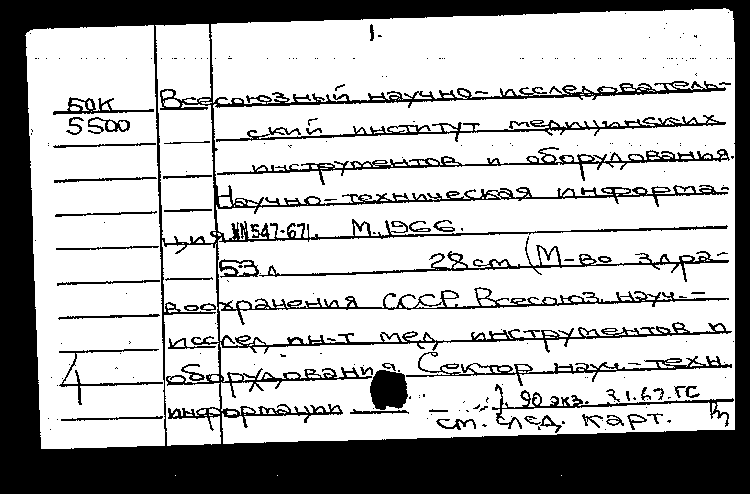 1.
50К
5500
Всесоюзный научно-исследователь-
ский институт медицинских
инструментов и оборудования.
Научно-техническая информа-
ция NN547-671. М., 1966.
53 л 28 cm. (М-во здра-
воохранения СССР. Всесоюз. науч.-
исслед. ин-т мед. инструментов и
оборудования. Сектор науч.-техн.
информации
90 экз. 3.1.67. ГС
см. след. карт.
4